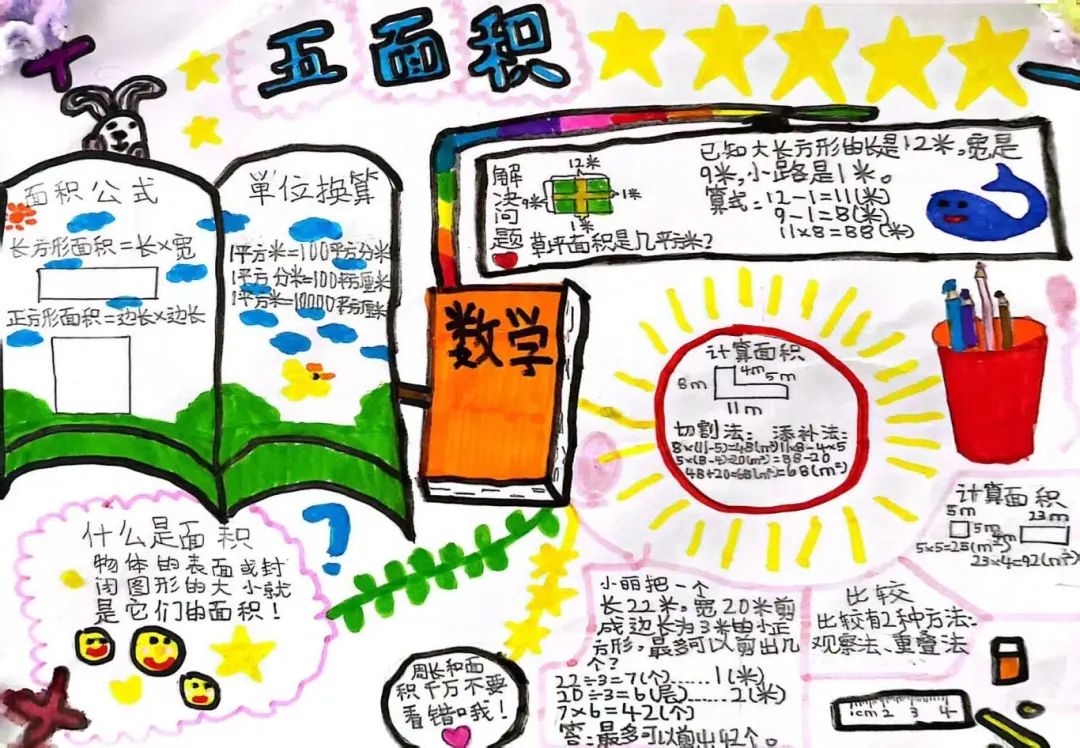 五面积
面积公式
长方形面积=长×宽
正方形面积=边长×边长
单位换算
1平方米=100平方分米
1平方分米=100平方厘米
1平方米=10000平方厘米
数学
解决问题
12米
9米
1米
1米
草坪面积是几平方米?
已知大长方形的长是12米,宽是
9米,小路是1米。
算式:12-1=11(米)
9-1=8(米)
11×8=88(米)
计算面积
8m
4m
5m
11m
切割法:
8×(11-5)=48(m²)
5×(8-4)=20(m²)
48+20=68(m²)
添补法:
11×8-4×5
=88-20
=68(m²)
计算面积
5m
23m
5m
4m
5×5=25(m²)
23×4=92(m²)
什么是面积
物体的表面或封
闭图形的大小就
是它们的面积!
?
周长和面
积千万不要
看错哦!
小丽把一个
长22米,宽20米剪
成边长为3米的小正
方形,最多可以剪出几
个?
22÷3=7(个)……1(米)
20÷3=6(层)……2(米)
7×6=42(个)
答:最多可以剪出42个。
比较
比较有2种方法:
观察法、重叠法
1cm 2 3 4